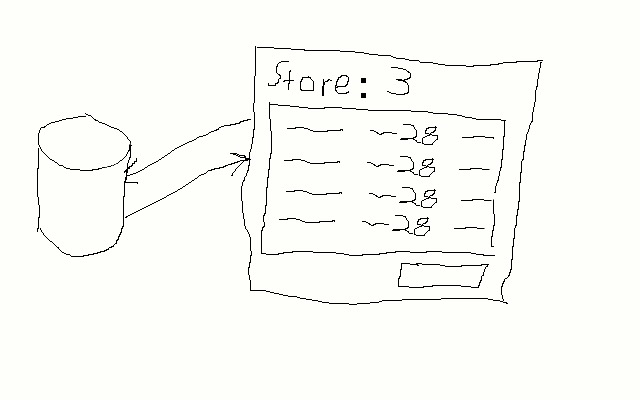 Store: 3
~28
~28
~28
~28